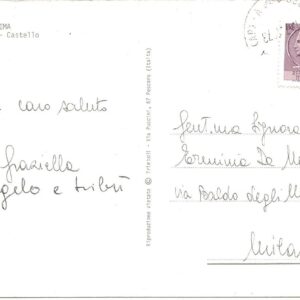 IMA
- Castello
caro saluto
Graziella
gelo e tribù
Riproduzione vietata © Trimboli - Via Puccini, 87 Pescara (Italia)
Gent.ma Signora
Erminia De M
via Baldo degli U
Mila